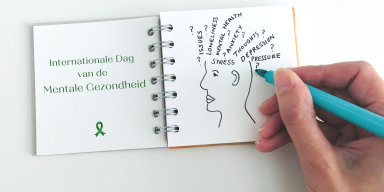 Internationale Dag
van de
Mentale Gezondheid
? ISSUES ?
LONELINESS
MENTAL HEALTH
? ANXIETY ?
THOUGHTS ?
DEPRESSION
STRESS
PRESSURE
?